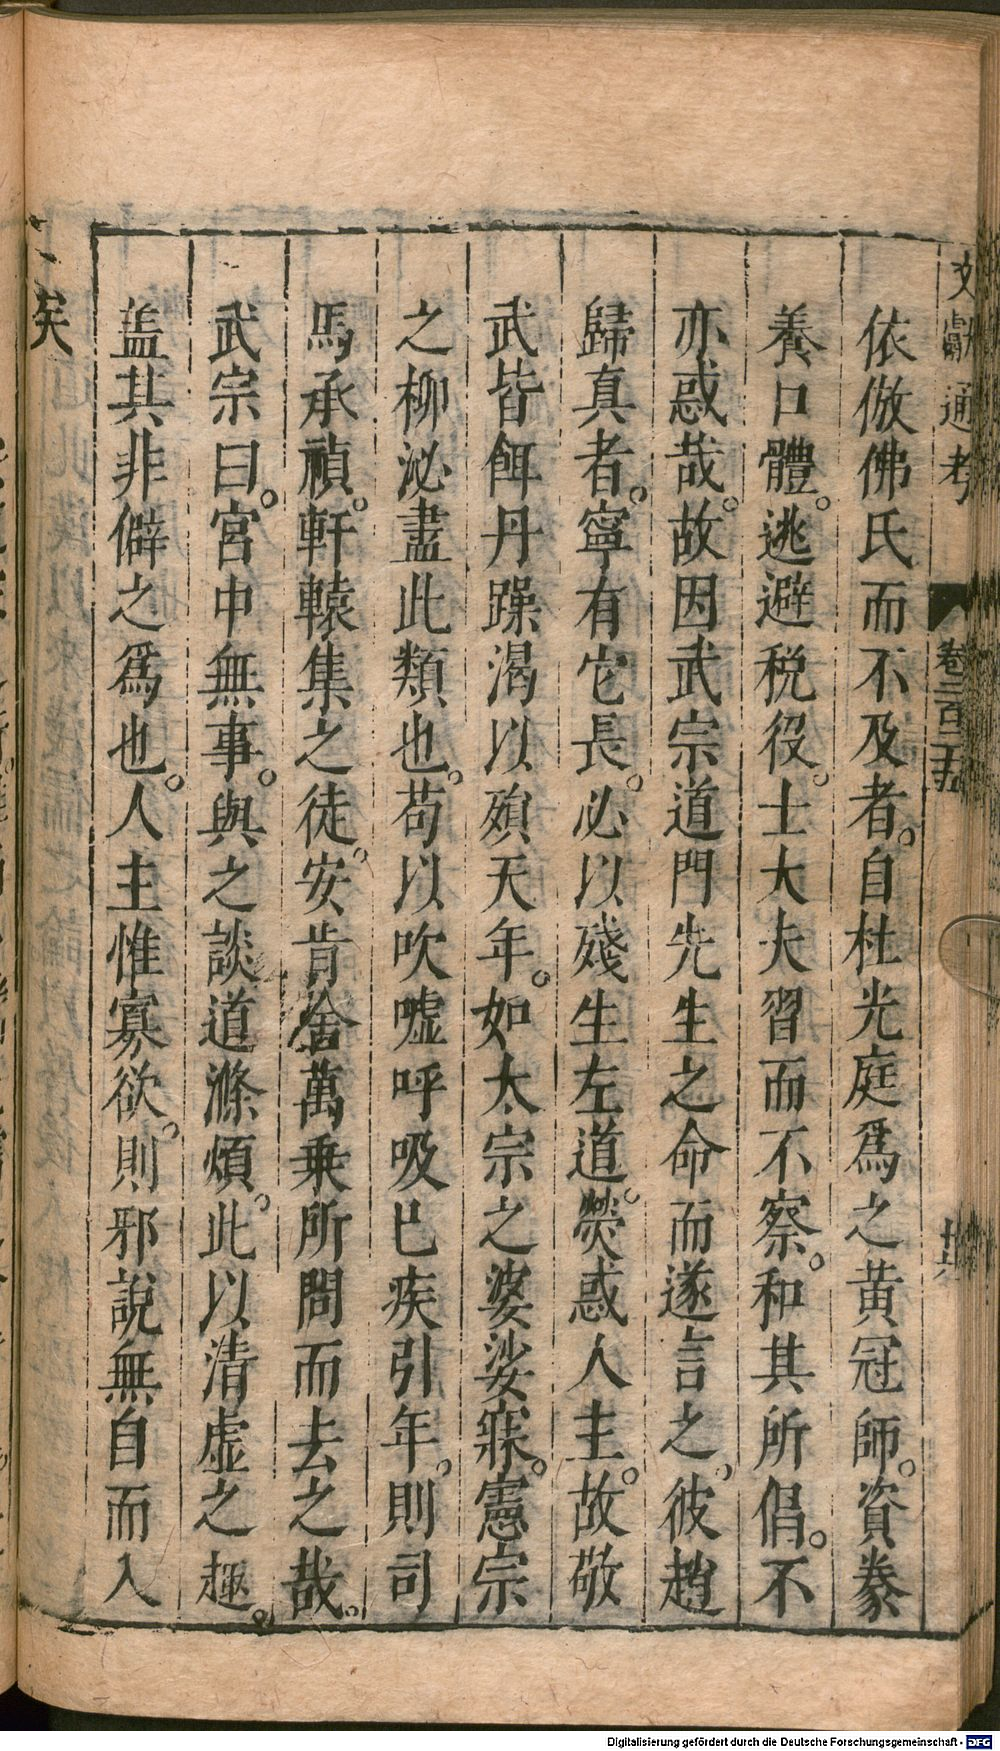 文獻通考 卷二百二十五
依倣佛氏而不及者。自杜光庭爲之黄冠師。資豢
養口體。逃避稅役。士大夫習而不察。和其所倡。不
亦惑哉。故因武宗道門先生之命而遂言之。彼趙
歸真者。寧有它長。必以殘生左道。熒惑人主。故敬
武皆餌丹躁渴以殞天年。如太宗之婆娑寐。憲宗
之柳泌盡此類也。苟以吹嘘呼吸已疾引年。則司
馬承禎。軒轅集之徒。安肯舍萬乘所問而去之哉。
武宗曰。宮中無事。與之談道滌煩。此以清虛之趣。
盖其非僻之爲也。人主惟寡欲。則邪說無自而入
矣
Digitalisierung gefördert durch die Deutsche Forschungsgemeinschaft - DFG